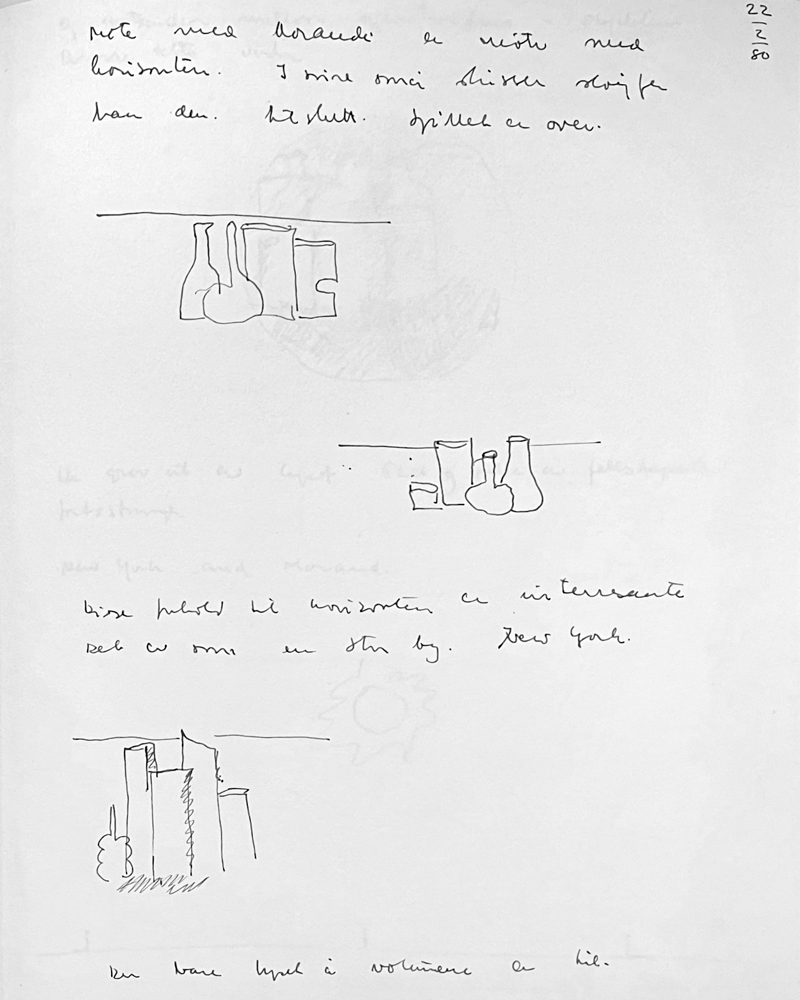 22
2
80
møte med Morandi er møte med
horisonten. I mine små skisser sløyfer
han den. Til slutt. Spillet er over.
Disse forhold til horisonten er interessante
Det er som en stor by. New York.
Den bare lyset i volumene er til.